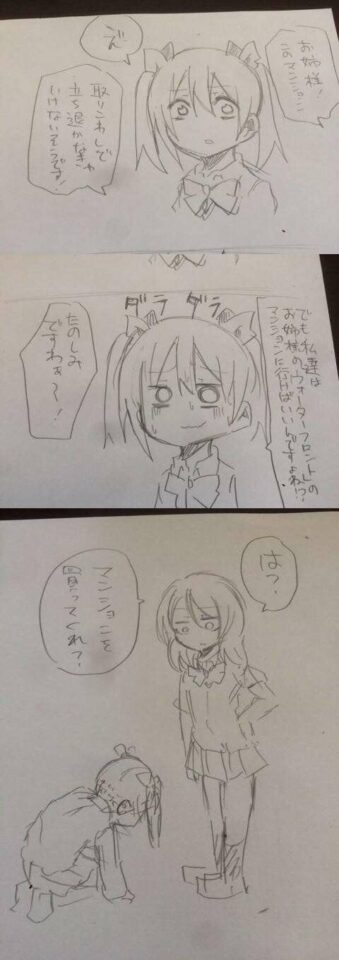 お姉様!
このマンション
え
取りこわしで
立ち退かなきゃ
いけないそうです!
でも私達は
お姉様の「ウォーターフロント」の
マンションに行けばいいんですよね!?
ダラ ダラ
たのしみ
ですわぁ〜!
は?
マンションを
買ってくれ?